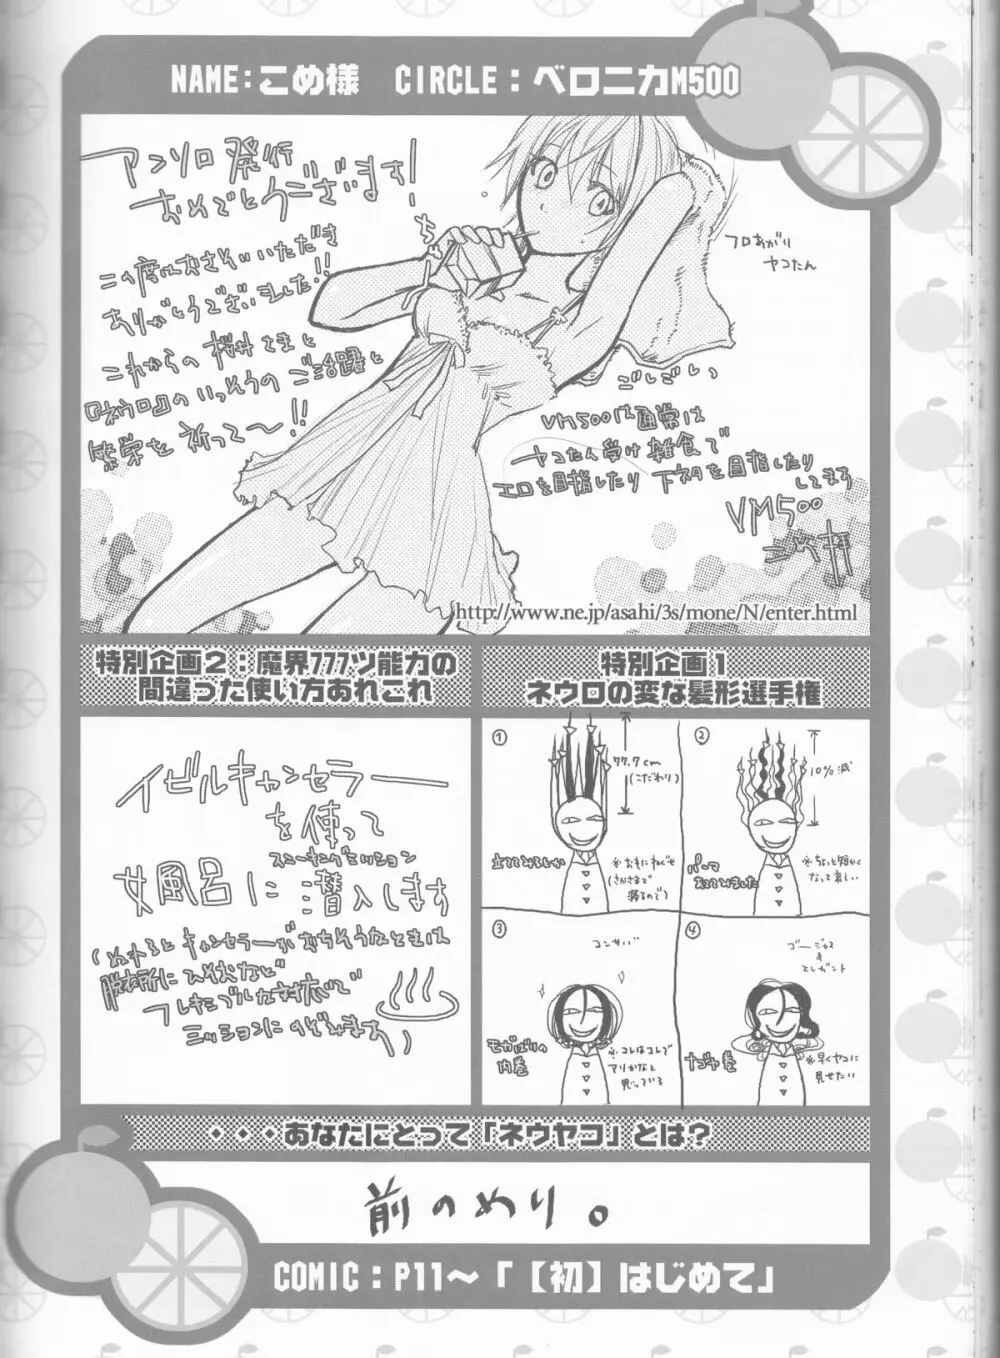 NAME:こめ様 CIRCLE:ベロニカM500
アンソロ発行
おめでとうございます!
この度はおさそいいただき
ありがとうございました!!
これからの桜井さまと
『ネウロ』のいっそうのご活躍と
繁栄を祈って〜!!
フロあがり
ヤコたん
ごしごしい
VM500は通常は
ヤコたん受け雑食で
エロを目指したり下ネタを目指したり
してます
VM500
http://www.ne.jp/asahi/3s/mone/N/enter.html
特別企画1
ネウロの変な髪形選手権
①
77.7cm
(こだわり)
立ててみるとか
※おもにねぐせ
(さかさまで
寝るので)
②
10%減
パーマ
あててみました
※ちょっと短かく
なって哀しい
③
コンサバ
モガばりの
内巻
※コレはコレで
アリかなと
思っている
④
ゴージャス
&
エレガント
ナゴヤ巻
※早くヤコに
見せたい
特別企画2:魔界777ツ能力の
間違った使い方あれこれ
イビルキャンセラー
を使って
女風呂に潜入します
スニーキングミッション
(ぬれるとキャンセラーがおちそうなときは
脱衣所にひそむなど
フレキシブルな対応で
ミッションにのぞみます)
・・・あなたにとって「ネウヤコ」とは?
前のめり。
COMIC:P11〜「【初】はじめて」